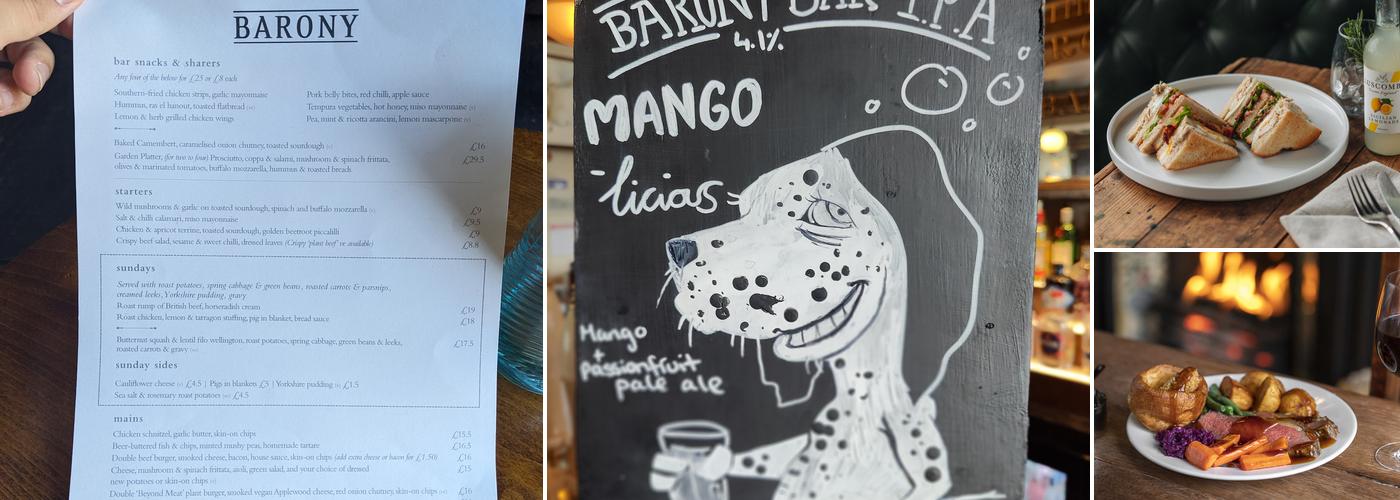 BARONY
bar snacks & sharers
Any four of the below for £25 or £8 each
Southern-fried chicken strips, garlic mayonnaise
Hummus, ras el hanout, toasted flatbread (ve)
Lemon & herb grilled chicken wings
Pork belly bites, red chilli, apple sauce
Tempura vegetables, hot honey, miso mayonnaise (v)
Pea, mint & ricotta arancini, lemon mascarpone (v)
Baked Camembert, caramelised onion chutney, toasted sourdough (v) £16
Garden Platter, (for two to four) Prosciutto, coppa & salami, mushroom & spinach frittata, £29.5
olives & marinated tomatoes, buffalo mozzarella, hummus & toasted breads
starters
Wild mushrooms & garlic on toasted sourdough, spinach and buffalo mozzarella (v) £9
Salt & chilli calamari, miso mayonnaise £9.5
Chicken & apricot terrine, toasted sourdough, golden beetroot piccalilli £9
Crispy beef salad, sesame & sweet chilli, dressed leaves (Crispy 'plant beef' ve available) £8.8
sundays
Served with roast potatoes, spring cabbage & green beans, roasted carrots & parsnips,
creamed leeks, Yorkshire pudding, gravy
Roast rump of British beef, horseradish cream £19
Roast chicken, lemon & tarragon stuffing, pig in blanket, bread sauce £18
Butternut squash & lentil filo wellington, roast potatoes, spring cabbage, green beans & leeks, £17.5
roasted carrots & gravy (ve)
sunday sides
Cauliflower cheese (v) £4.5 | Pigs in blankets £5 | Yorkshire pudding (v) £1.5
Sea salt & rosemary roast potatoes (ve) £4.5
mains
Chicken schnitzel, garlic butter, skin-on chips £15.5
Beer-battered fish & chips, minted mushy peas, homemade tartare £16.5
Double beef burger, smoked cheese, bacon, house sauce, skin-on chips (add extra cheese or bacon for £1.50) £16
Cheese, mushroom & spinach frittata, aioli, green salad, and your choice of dressed £15
new potatoes or skin-on chips (v)
Double 'Beyond Meat' plant burger, smoked vegan Applewood cheese, red onion chutney, skin-on chips (ve) £16
BARONY BAR I.P.A
4.1%
MANGO
-'licias
Mango
+
passionfruit
pale ale
SICILIAN
LEMONADE